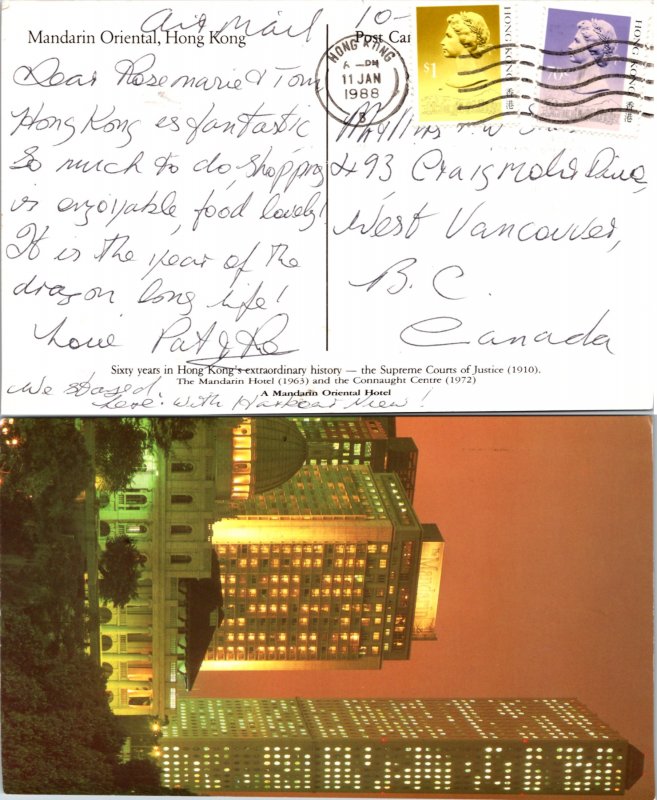 Air Mail
10-
Mandarin Oriental, Hong Kong
Post Car
HONG KONG
11 JAN
1988
$1
HONG KONG 香港
HONG KONG 香港
Dear Rosemarie & Tom
Hong Kong is fantastic
So much to do, shopping
is enjoyable, food lovely!
It is the year of the
dragon long life!
Love Pat &
493 Drive,
West Vancouver,
B. C.
Canada
Sixty years in Hong Kong's extraordinary history — the Supreme Courts of Justice (1910).
The Mandarin Hotel (1963) and the Connaught Centre (1972)
A Mandarin Oriental Hotel
We stayed
here. With Harbour View!